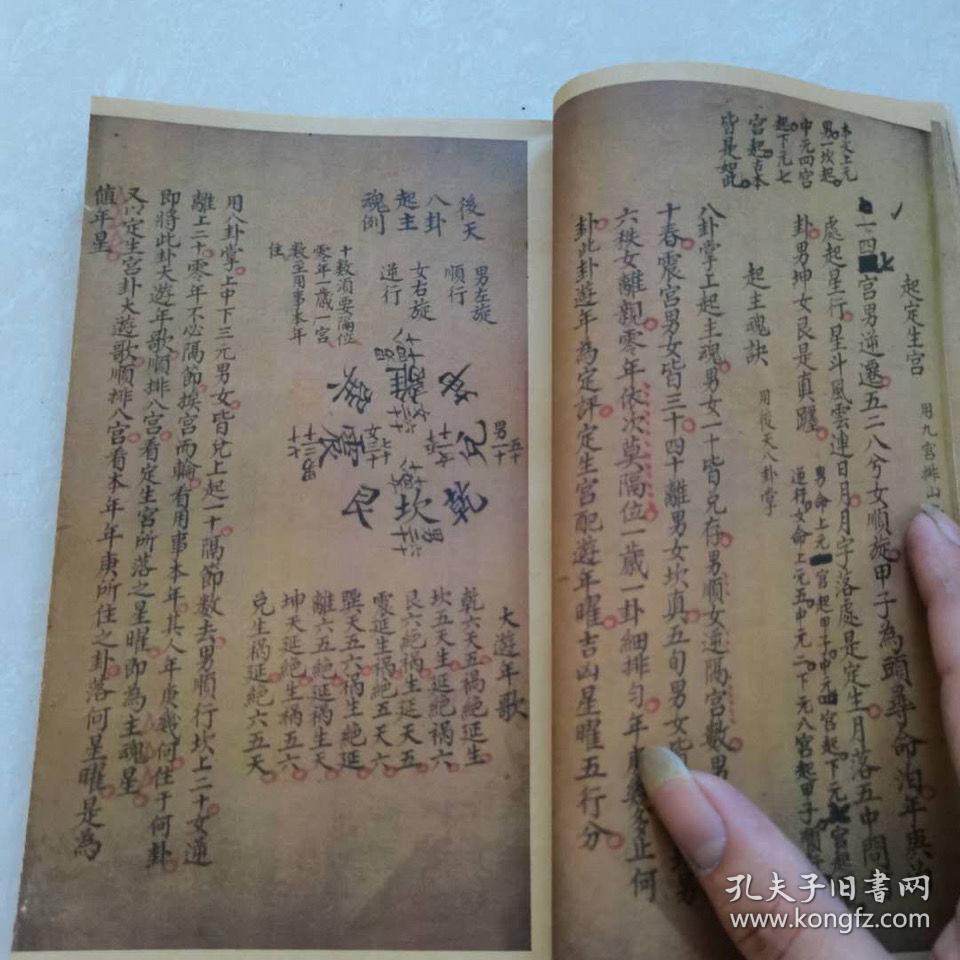 本文上元
男一坎起
中元四宮
起下元七
宮起古本
皆是如此
起定生宮
用九宮掛山
一四七宮男逆遷五二八兮女順旋甲子為頭尋命泊年與
處起星行星斗風雲連日月月字落處是定生月落五中問
卦男坤女艮是真躔
男命上元 宮起甲子中元四宮起下元 宮起
逆耕女命上元五中元二下元八宮起甲子順
起主魂訣
用後天八卦掌
八卦掌上起主魂男女一十皆兑存男順女逆隔宮數男
十春震宮男女皆三十四十離男女坎真五旬男女
六秩女離親零年依次莫隔位一歲一卦細排勻年庚 多正何
卦此卦遊年為定評定生宮配遊年曜吉凶星曜五行分
後天
八卦
起主
魂例
男左旋
順行
女右旋
逆行
十數須要隔位
零年一歲一宮
數至用事本年
住
離
震
坎
乾
艮
大遊年歌
乾六天五禍絶延生
坎五天生延絶禍六
艮六絶禍生延天五
震延生禍絶五天六
巽天五六禍生絶延
離六五絶延禍生天
坤天延絶生禍五六
兑生禍延絶六五天
用八卦掌上中下三元男女皆兑上起一十隔節數去男順行坎上二十女逆
離上二十零年不必隔節挨宮而輪看用事本年其人年庚幾何住于何卦
即將此卦大遊年歌順排八宮看定生宮所落之星曜即為主魂星
又以定生宮卦大遊歌順排八宮看本年年庚所住之卦落何星曜是為
值年星
孔夫子旧书网
www.kongfz.com